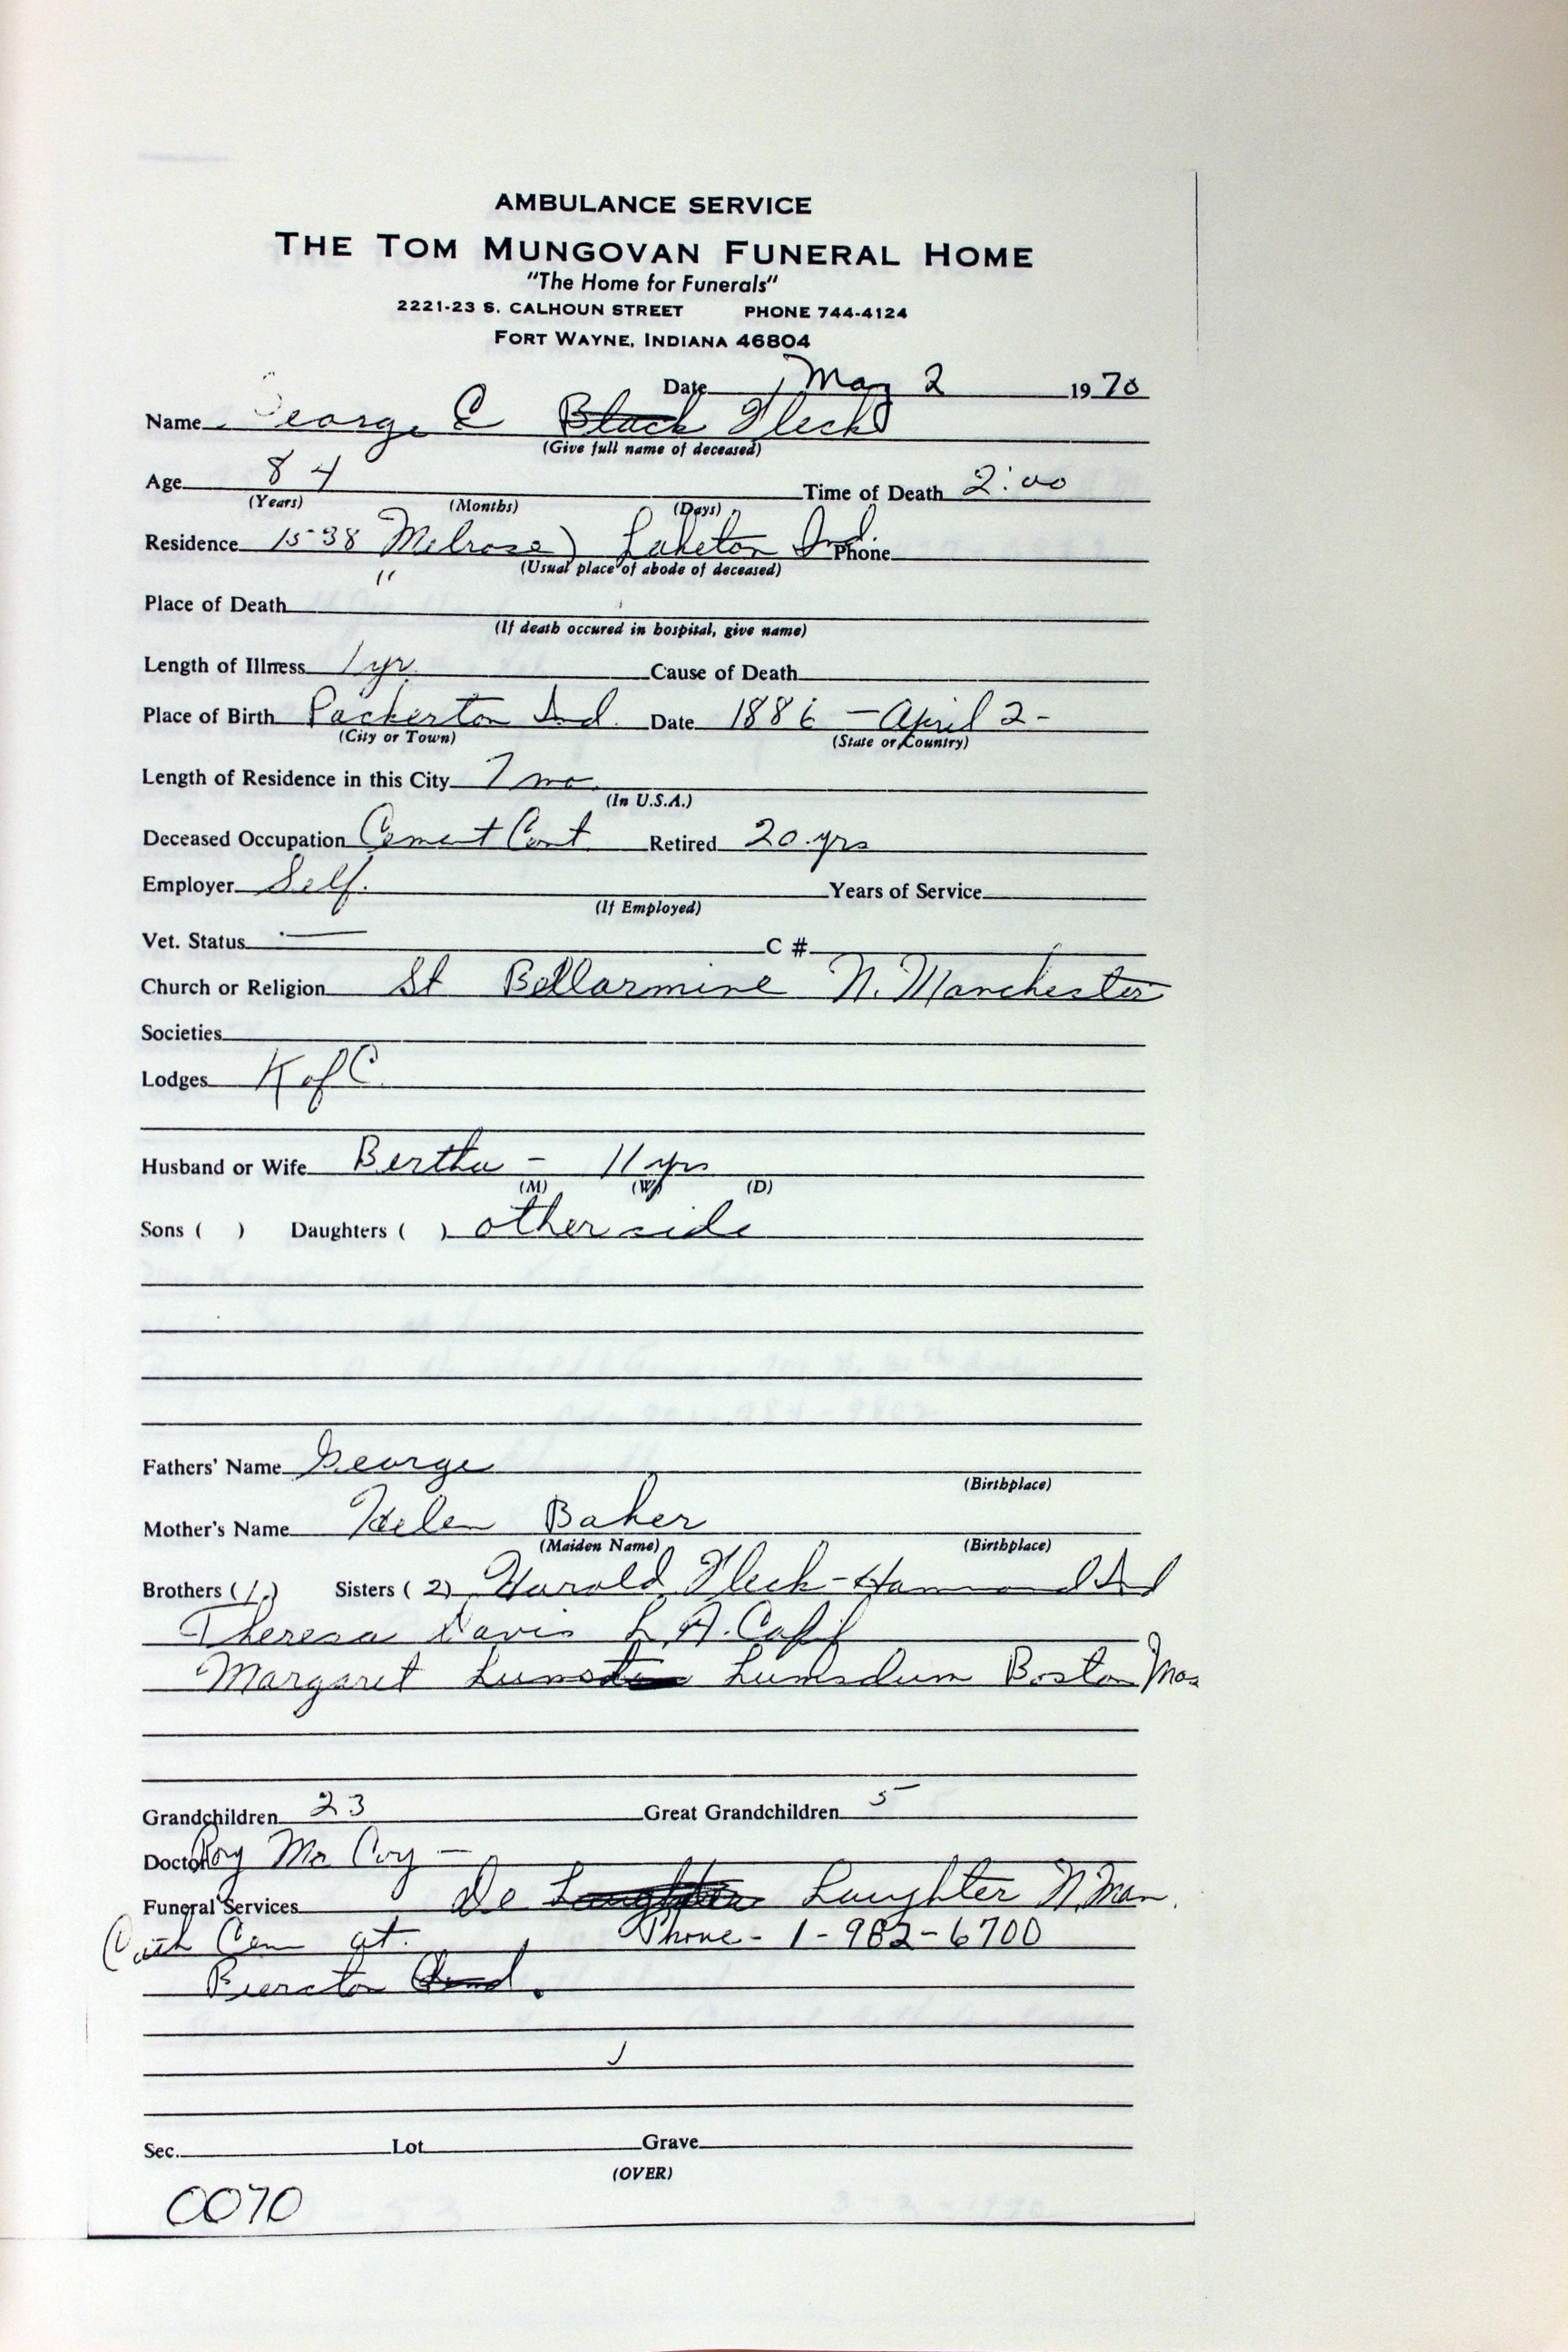 AMBULANCE SERVICE
THE TOM MUNGOVAN FUNERAL HOME
"The Home for Funerals"
2221-23 S. CALHOUN STREET PHONE 744-4124
FORT WAYNE, INDIANA 46804
Date May 2 1970
Name George C Black Fleck
(Give full name of deceased)
Age 84 Time of Death 2:00
(Years) (Months) (Days)
Residence 1538 Melrose) Laketon Ind. Phone
(Usual place of abode of deceased)
Place of Death "
(If death occured in hospital, give name)
Length of Illness 1 yr. Cause of Death
Place of Birth Packerton Ind. Date 1886 - April 2 -
(City or Town) (State or Country)
Length of Residence in this City 7 mo.
(In U.S.A.)
Deceased Occupation Cement Cont. Retired 20 yrs
Employer Self. Years of Service
(If Employed)
Vet. Status — C #
Church or Religion St Bellarmine N. Manchester
Societies
Lodges K of C
Husband or Wife Bertha - 11 yrs
(M) (W) (D)
Sons ( ) Daughters ( ) other side
Fathers' Name George
(Birthplace)
Mother's Name Helen Baker
(Maiden Name) (Birthplace)
Brothers (1) Sisters (2) Harold Fleck - Hammond Ind
Theresa Davis L.A. Calif
Margaret Lumsdum Boston Mas
Grandchildren 23 Great Grandchildren 5
Doctor Roy Mc Coy -
Funeral Services De Laughter N. Man.
Cath Cem at. Phone - 1-982-6700
Pierceton Ind.
Sec. Lot Grave
(OVER)
0070